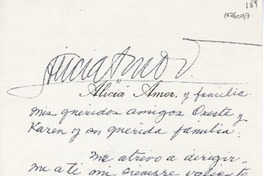 109
Alicia Amor.
Alicia Amor. y familia
Mis queridos amigos Oreste y
Karen y su querida familia:
Me atrevo a dirigir-
me a ti mi siempre